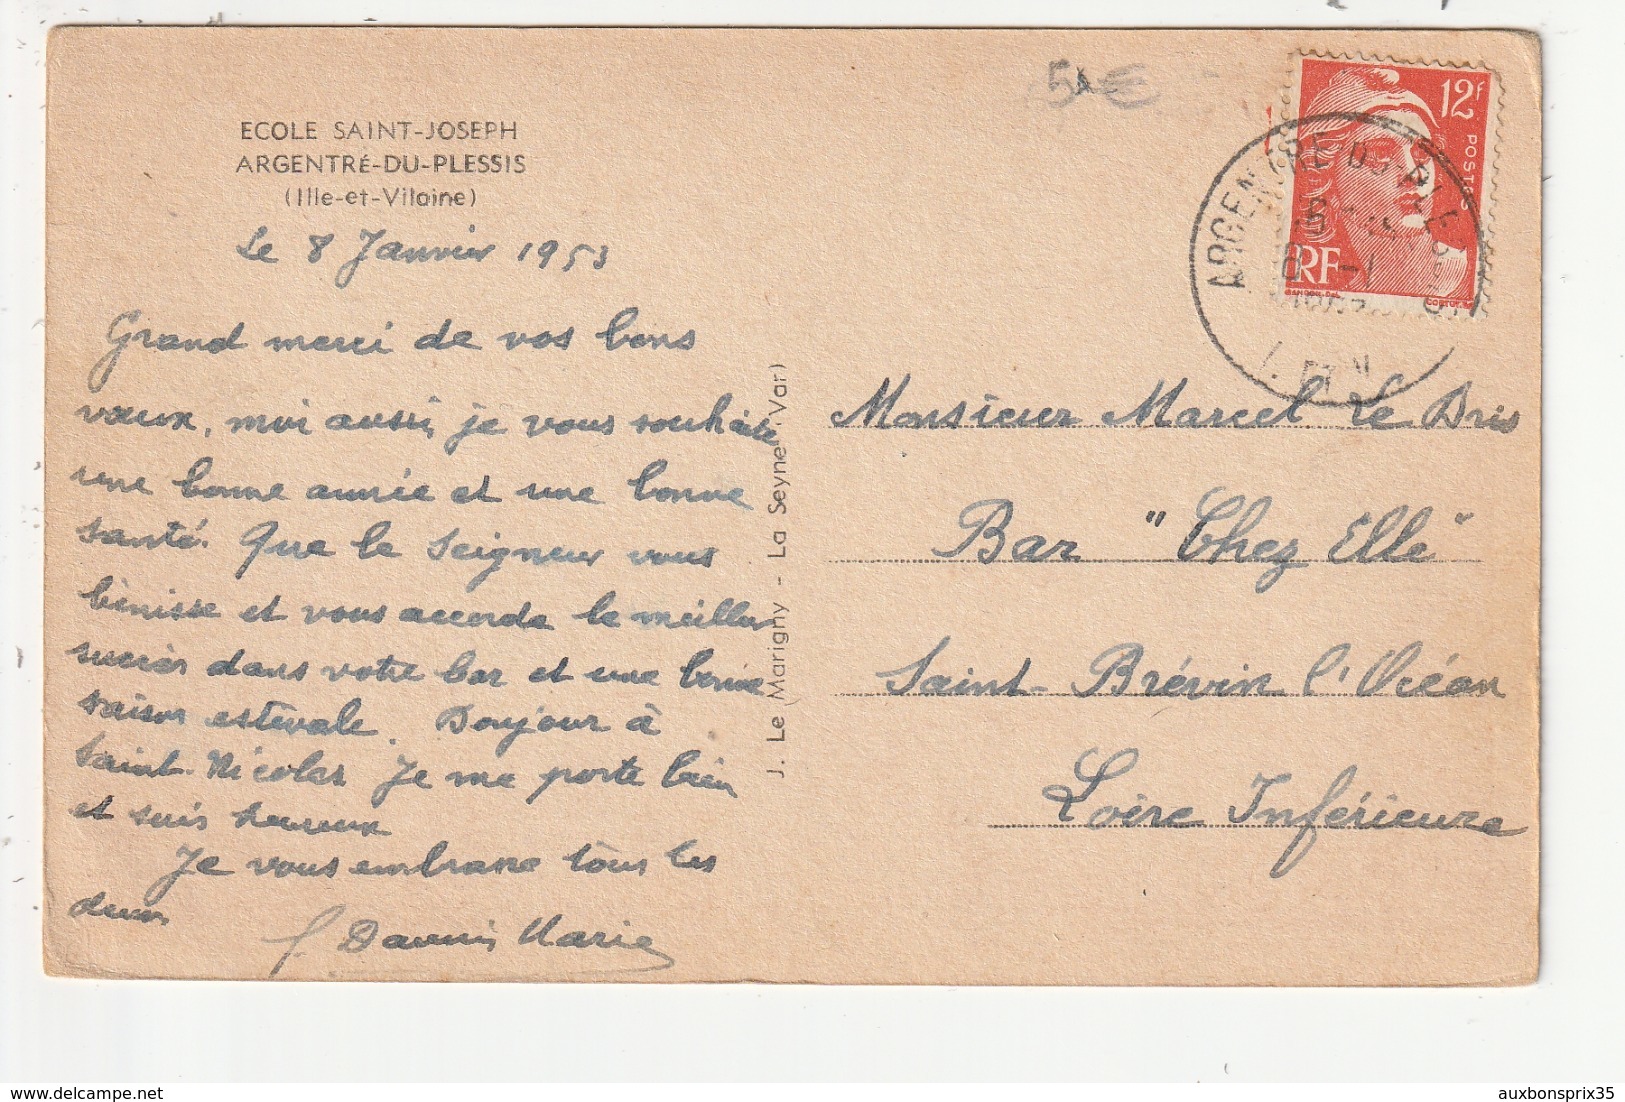 5€
ECOLE SAINT-JOSEPH
ARGENTRÉ-DU-PLESSIS
(Ille-et-Vilaine)
Le 8 Janvier 1953
Grand merci de vos bons
vœux, moi aussi, je vous souhaite
une bonne année et une bonne
santé. Que le Seigneur vous
bénisse et vous accorde le meilleur
succès dans votre bar et une bonne
saison estivale. Bonjour à
Saint-Nicolas. Je me porte bien
et suis heureux
Je vous embrasse tous les
deux
f. Marie
J. Le Marigny - La Seyne (Var)
12F
POSTES
RF
ARGENTRE DU PLESSIS
8 -1
Monsieur Marcel Le Bris
Bar "Chez Elle"
Saint-Brévin l'Océan
Loire Inférieure
auxbonsprix35